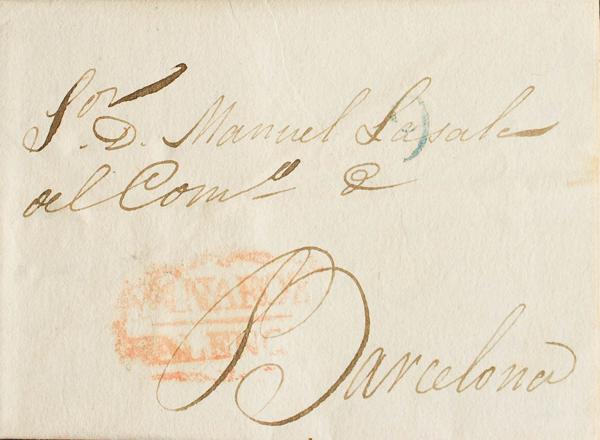 Sor. D. Manuel Lasale
del Como de
Barcelona